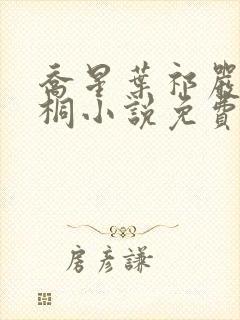 喬星葉祁嚴
桐小說免費
房彥謙